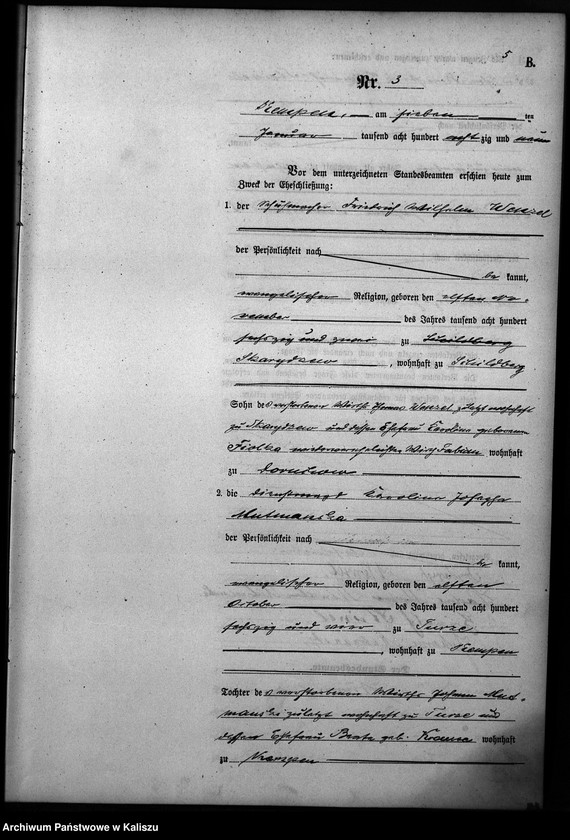 5
B.
Nr. 3
Kempen, am sieben ten
Januar tausend acht hundert acht zig und neun
Vor dem unterzeichneten Standesbeamten erschien heute zum
Zweck der Eheschließung:
1. der Schuhmacher Friedrich Wilhelm Wenzel
der Persönlichkeit nach
be kannt,
evangelischer Religion, geboren den elften No-
vember des Jahres tausend acht hundert
sechszig und zwei zu
, wohnhaft zu Schildberg
Sohn des verstorbenen Wirths Wenzel zuletzt wohnhaft
zu und dessen Ehefrau Karoline geborenen
Fiolka wohnhaft
zu
2. die Dienstmagd Karolina Josepha
Mutmanska
der Persönlichkeit nach
be kannt,
evangelischer Religion, geboren den elften
October des Jahres tausend acht hundert
sechszig und vier zu Turze
, wohnhaft zu Kempen
Tochter des verstorbenen Wirths Johann Mut-
manski zuletzt wohnhaft zu Turze und
dessen Ehefrau Beate geb. wohnhaft
zu Kempen
Archiwum Państwowe w Kaliszu